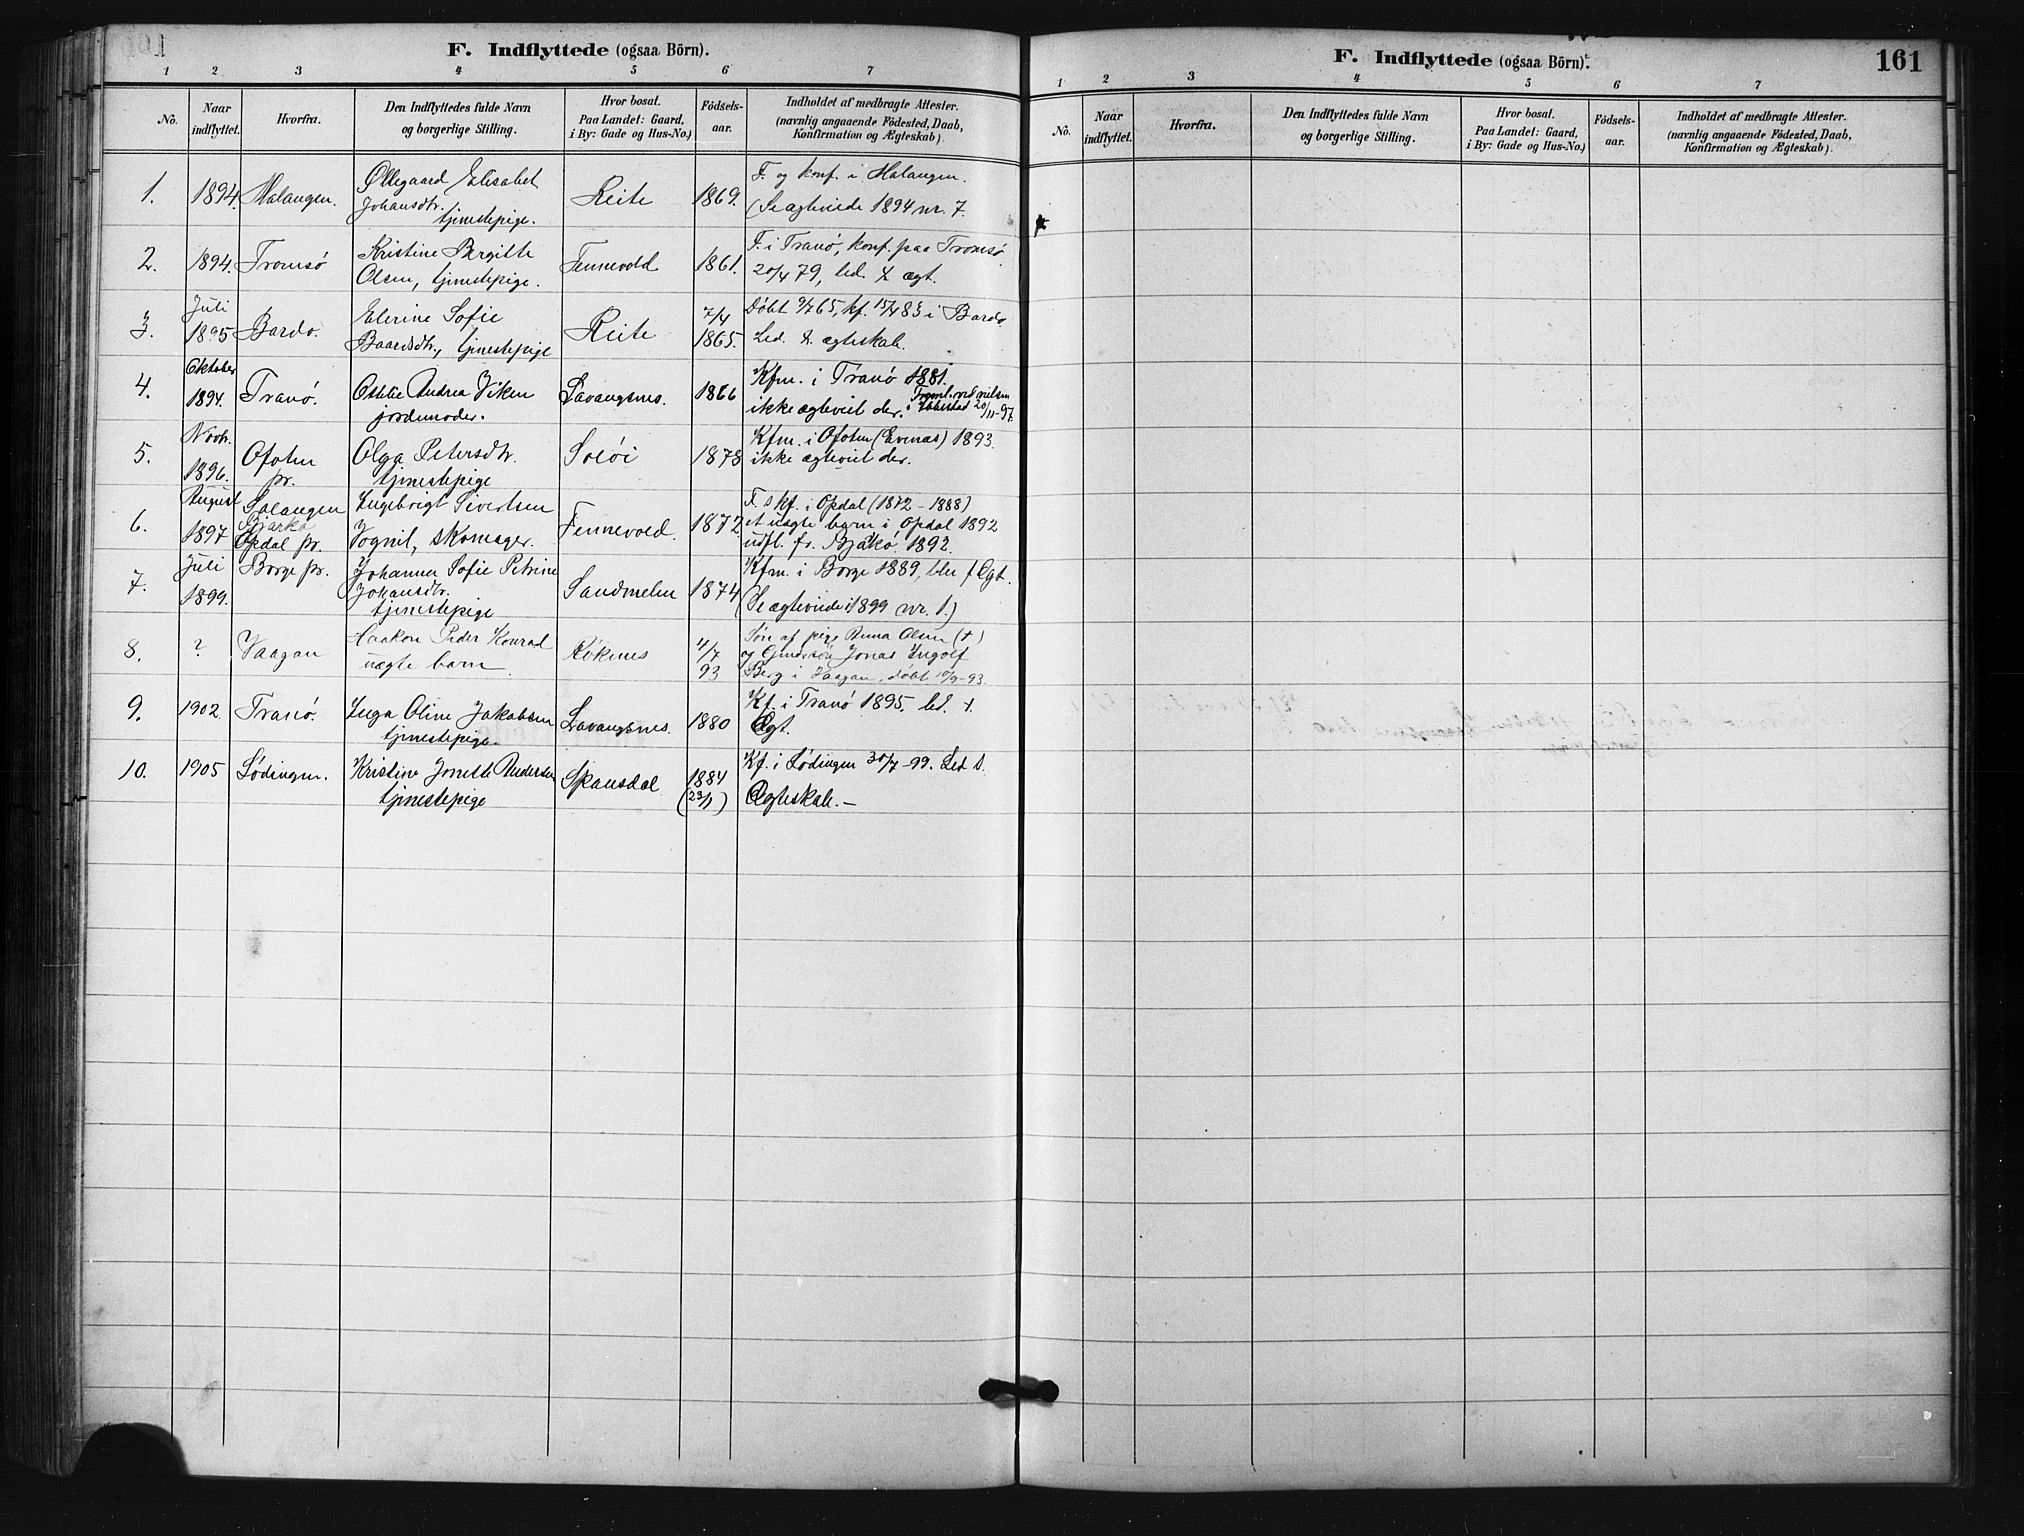 F. Indflyttede (ogsaa Börn).
1 2 3 4 5 6 7
No.
Naar indflyttet.
Hvorfra.
Den Indflyttedes fulde Navn og borgerlige Stilling.
Hvor bosat. Paa Landet: Gaard, i By: Gade og Hus-No.)
Födsels-aar.
Indholdet af medbragte Attester. (navnlig angaaende Födested, Daab, Konfirmation og Ægteskab).
1. 1894. Malangen. Øllegaard Elisabet Johansdtr. tjenestepige. Reite 1869. F. og konf. i Malangen. (Se ægteviede 1894 nr. 7.
2. 1894. Tromsø Kristine Bergitte Olsen, tjenestepige. Fennevold 1861. F. i Tranø, konf. paa Tromsø 20/4 79, led. t. ægt.
3. Juli 1895 Bardo. Elerine Sofie Baardsdtr., tjenestepige Reite 7/4 1865. Døbt 9/7 65, kf. 15/7 83 i Bardo Led. t. ægteskab.
4. Oktober 1894. Tranø. Otilie Andrea Viken jordemoder. Lavangsnes. 1866 Kfm. i Tranø 1881. ikke ægteviet der.
5. Novbr. 1896. Ofoten pr. Olga Petersdtr. tjenestepige Soløi 1878 Kfm. i Ofoten (Evenæs) 1893. ikke ægteviet der.
6. August 1897 Salangen Bjarkø Opdal pr. Ingebrigt Sivertsen Vognil, skomager. Fennevold. 1872. F. & kf. i Opdal (1872 - 1888) et uægte barn i Opdal 1892 udfl. fr. Bjarkø 1892.
7. Juli 1899. Borge pr. Johanna Sofie Petrine Johansdtr. tjenestepige Sandmelen 1874 Kfm. i Borge 1889, Ægt. (Se ægteviede i 1899 nr. 1.)
8. ? Vaagan Haakon Peder Konrad uægte barn Røkenes 11/7 93 Søn af pige Anna Olsen (+) og Jonas Ingolf Berg i Vaagan, døbt 10/9-93.
9. 1902. Tranø. Inga Oline Jakobsen tjenestepige. Lavangsnes. 1880 Kf. i Tranø 1895. led. t. Ægt.
10. 1905 Lødingen. Kristine Jonette Andersen tjenestepige Spansdal 1884 (23/1) Kf. i Lødingen 30/7-99. Led t. Ægteskab.—
F. Indflyttede (ogsaa Börn).
161
1 2 3 4 5 6 7
No.
Naar indflyttet.
Hvorfra.
Den Indflyttedes fulde Navn og borgerlige Stilling.
Hvor bosat. Paa Landet: Gaard, i By: Gade og Hus-No.)
Födsels-aar.
Indholdet af medbragte Attester. (navnlig angaaende Födested, Daab, Konfirmation og Ægteskab).